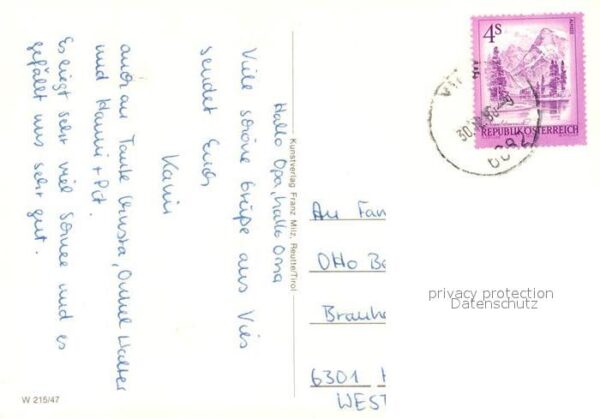 Hallo Opa, hallo Oma
Viele schöne Grüße aus Vils
sendet Euch
Karin
auch an Tante Christa, Onkel Walter
und Hanni + Pit.
Es liegt sehr viel Schnee und es
gefällt uns sehr gut.
W 215/47
Kunstverlag Franz Milz, Reutte/Tirol
4S
ALMSEE
REPUBLIK ÖSTERREICH
6682
An Fam
Otto Be
Brauhe
6301
WEST
privacy protection
Datenschutz